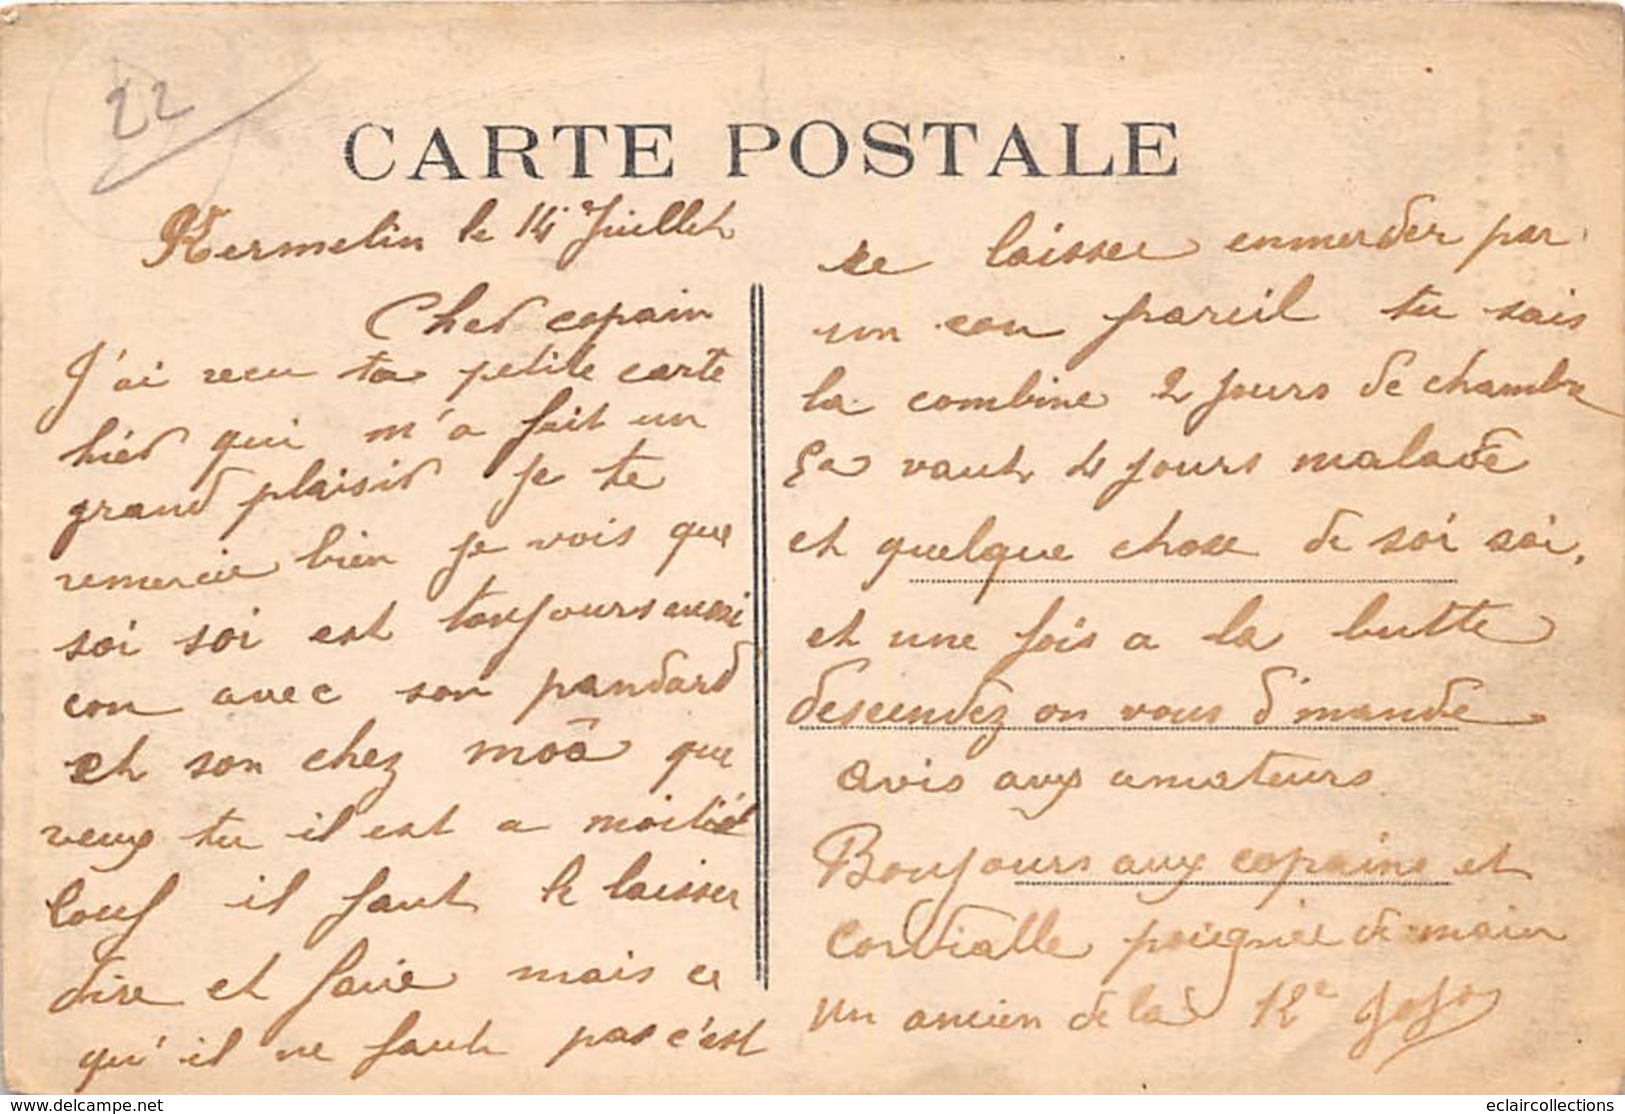 22
CARTE POSTALE
Kermelin le 14 Juillet
Cher copain
J'ai recu ta petite carte
hier qui m'a fait un
grand plaisir je te
remercie bien je vois que
soi soi est toujours aussi
con avec son pandard
et son chez moâ que
veux tu il est a moitié
louf il faut le laisser
dire et faire mais ce
qu'il ne faut pas c'est
se laisser enmerder par
un con pareil tu sais
la combine 2 jours de chambre
ça vaut 4 jours malade
et quelque chose de soi soi,
et une fois a la butte
descendez on vous d'mande
avis aux amateurs
Bonjours aux copains et
cordialle poignée de main
un ancien de la 12e Jojo
www.delcampe.net
eclaircollections